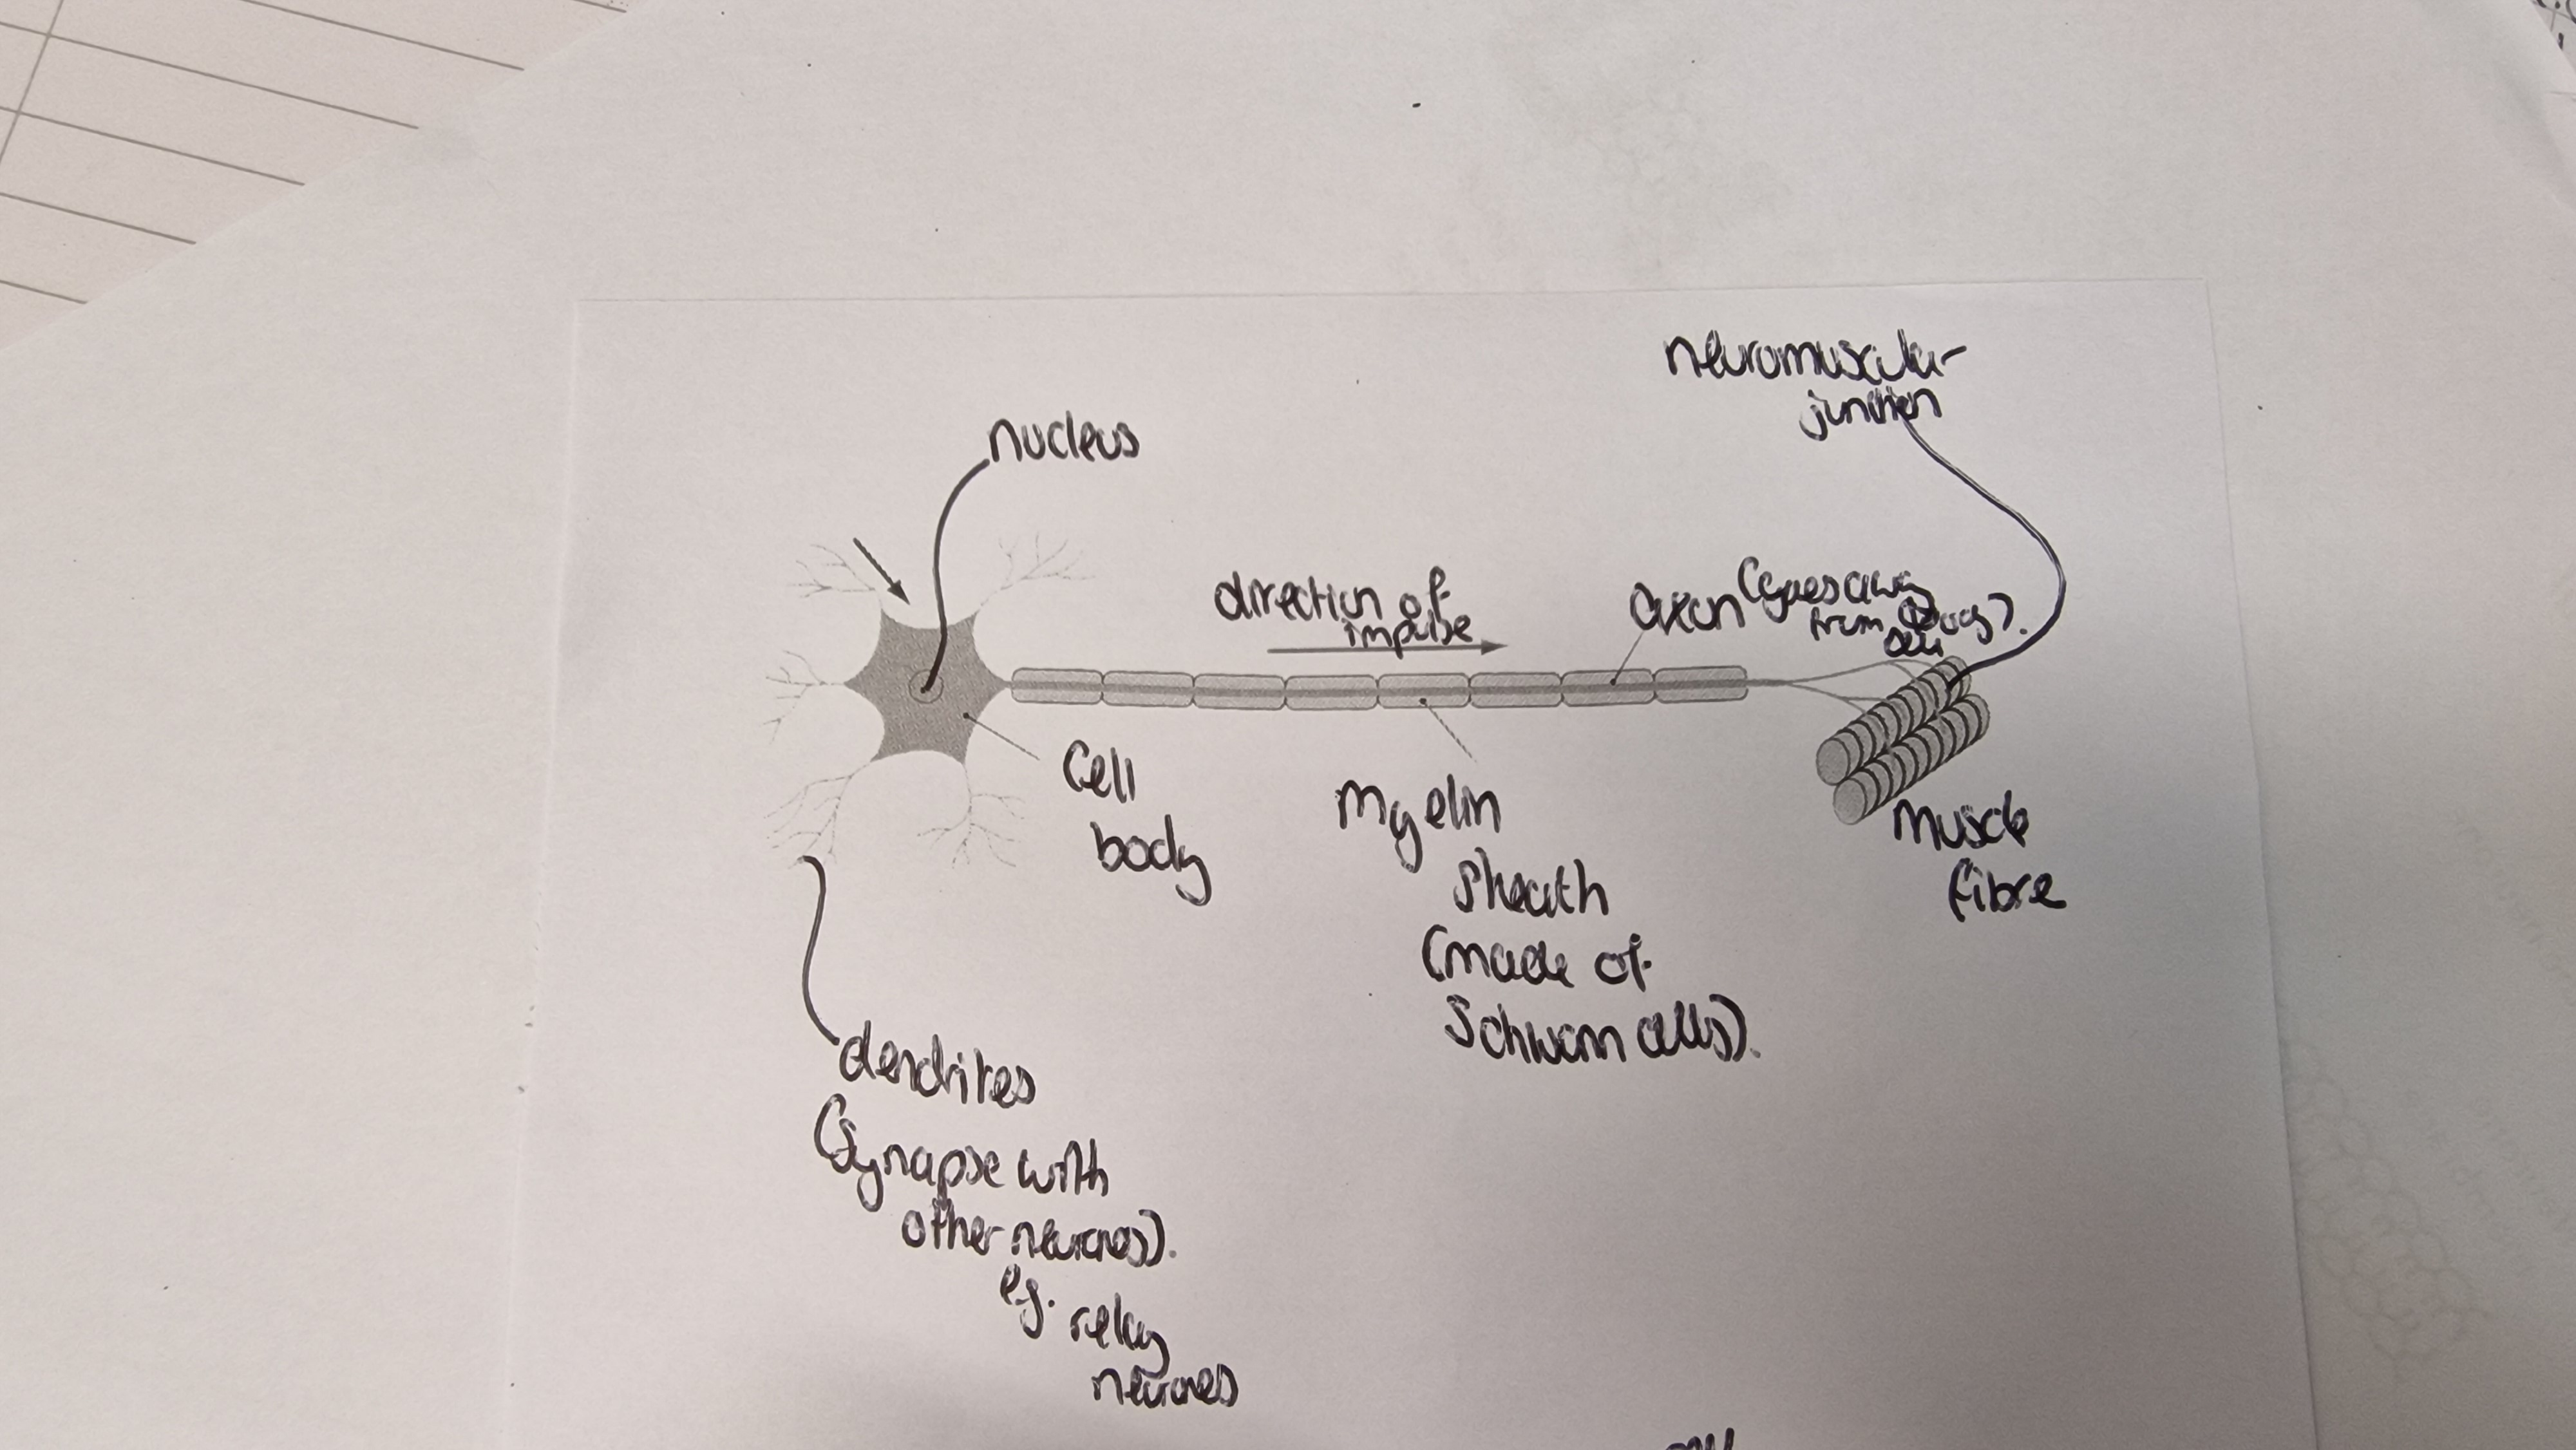 neuromuscular
junction
nucleus
direction of
impulse
axon (goes away
from cell body).
cell
body
myelin
sheath
(made of
Schwann cells).
muscle
fibre
dendrites
(synapse with
other neurones).
eg. relay
neurones